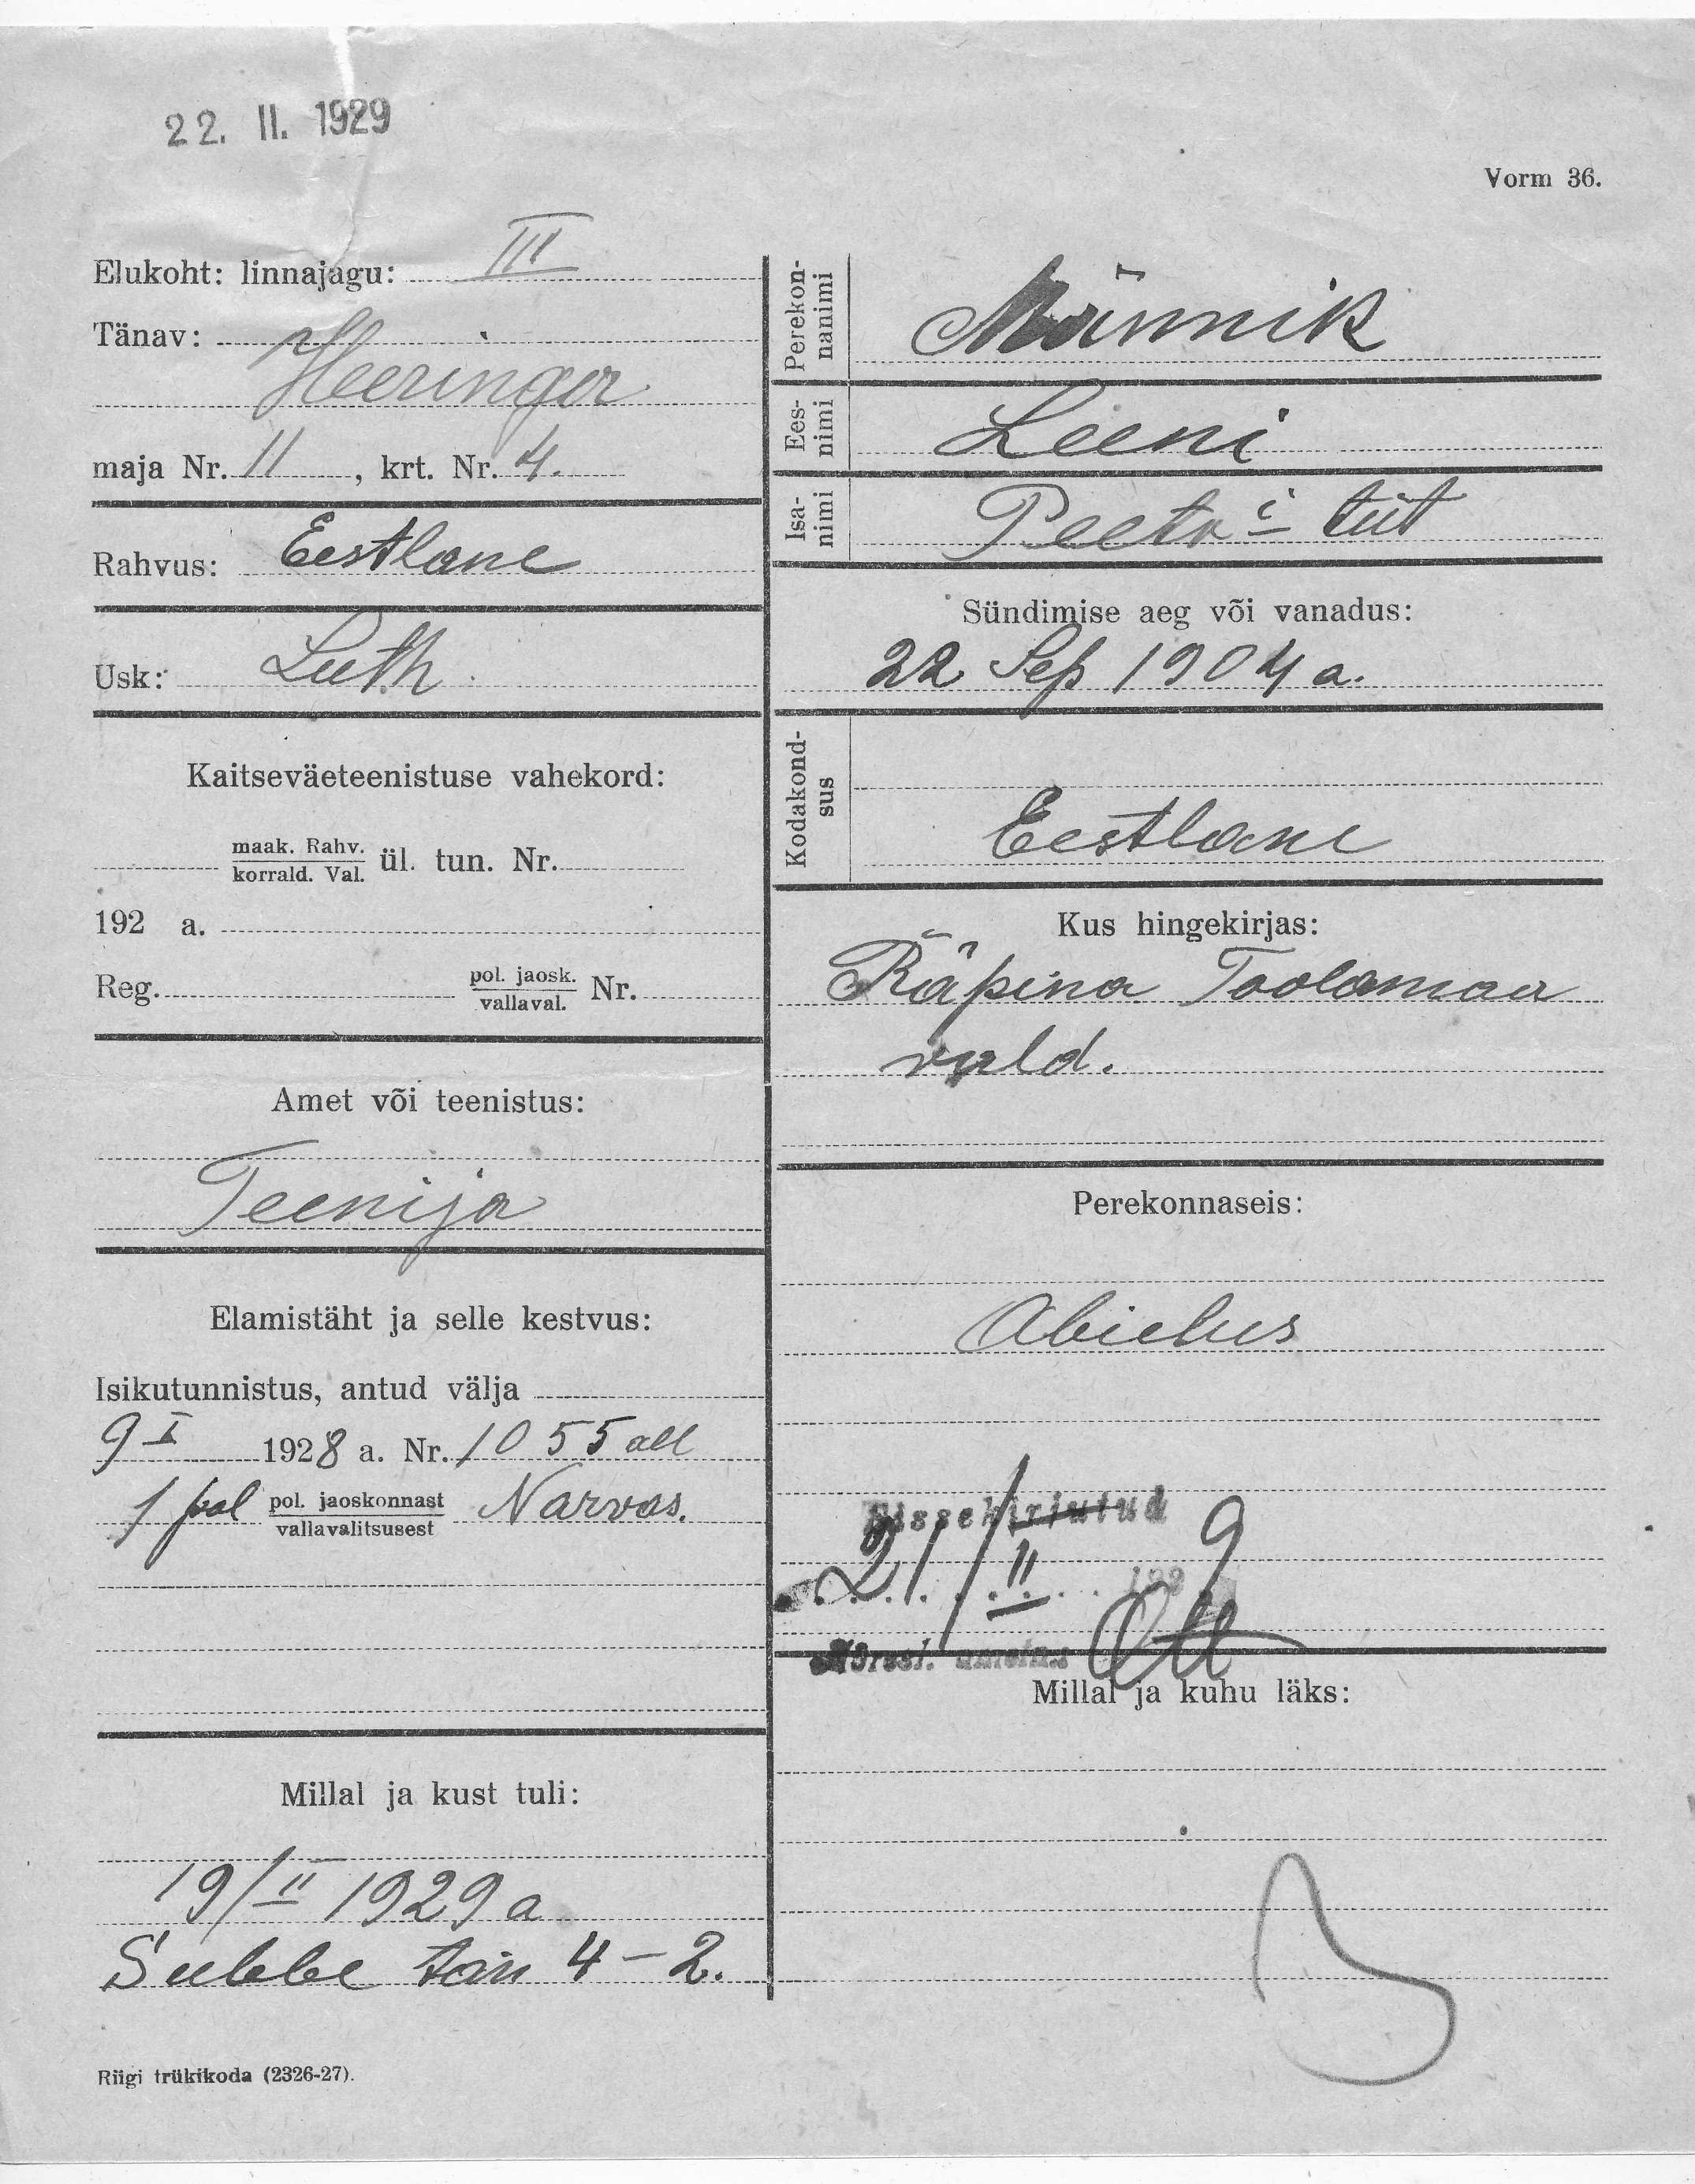 22. II. 1929
Vorm 36.
Elukoht: linnajagu: III
Tänav:
Heeringa
maja Nr. 11, krt. Nr. 4.
Rahvus: Eestlane
Usk: Luth.
Kaitseväeteenistuse vahekord:
maak. Rahv.
korrald. Val. ül. tun. Nr.
192 a.
Reg. pol. jaosk.
vallaval. Nr.
Amet või teenistus:
Teenija
Elamistäht ja selle kestvus:
Isikutunnistus, antud välja
9 I 1928 a. Nr. 1055 all
1 pol pol. jaoskonnast
vallavalitsusest Narvas.
Millal ja kust tuli:
19/II 1929 a
tän 4-2.
Riigi trükikoda (2326-27).
Perekon-
nanimi Männik
Ees-
nimi Leeni
Isa-
nimi Peetri tüt
Sündimise aeg või vanadus:
22 Sep 1904 a.
Kodakond-
sus Eestlane
Kus hingekirjas:
Räpina Toolamaa
vald.
Perekonnaseis:
Abielus
Sissekirjutud
21/II 1929
Ott
Millal ja kuhu läks: